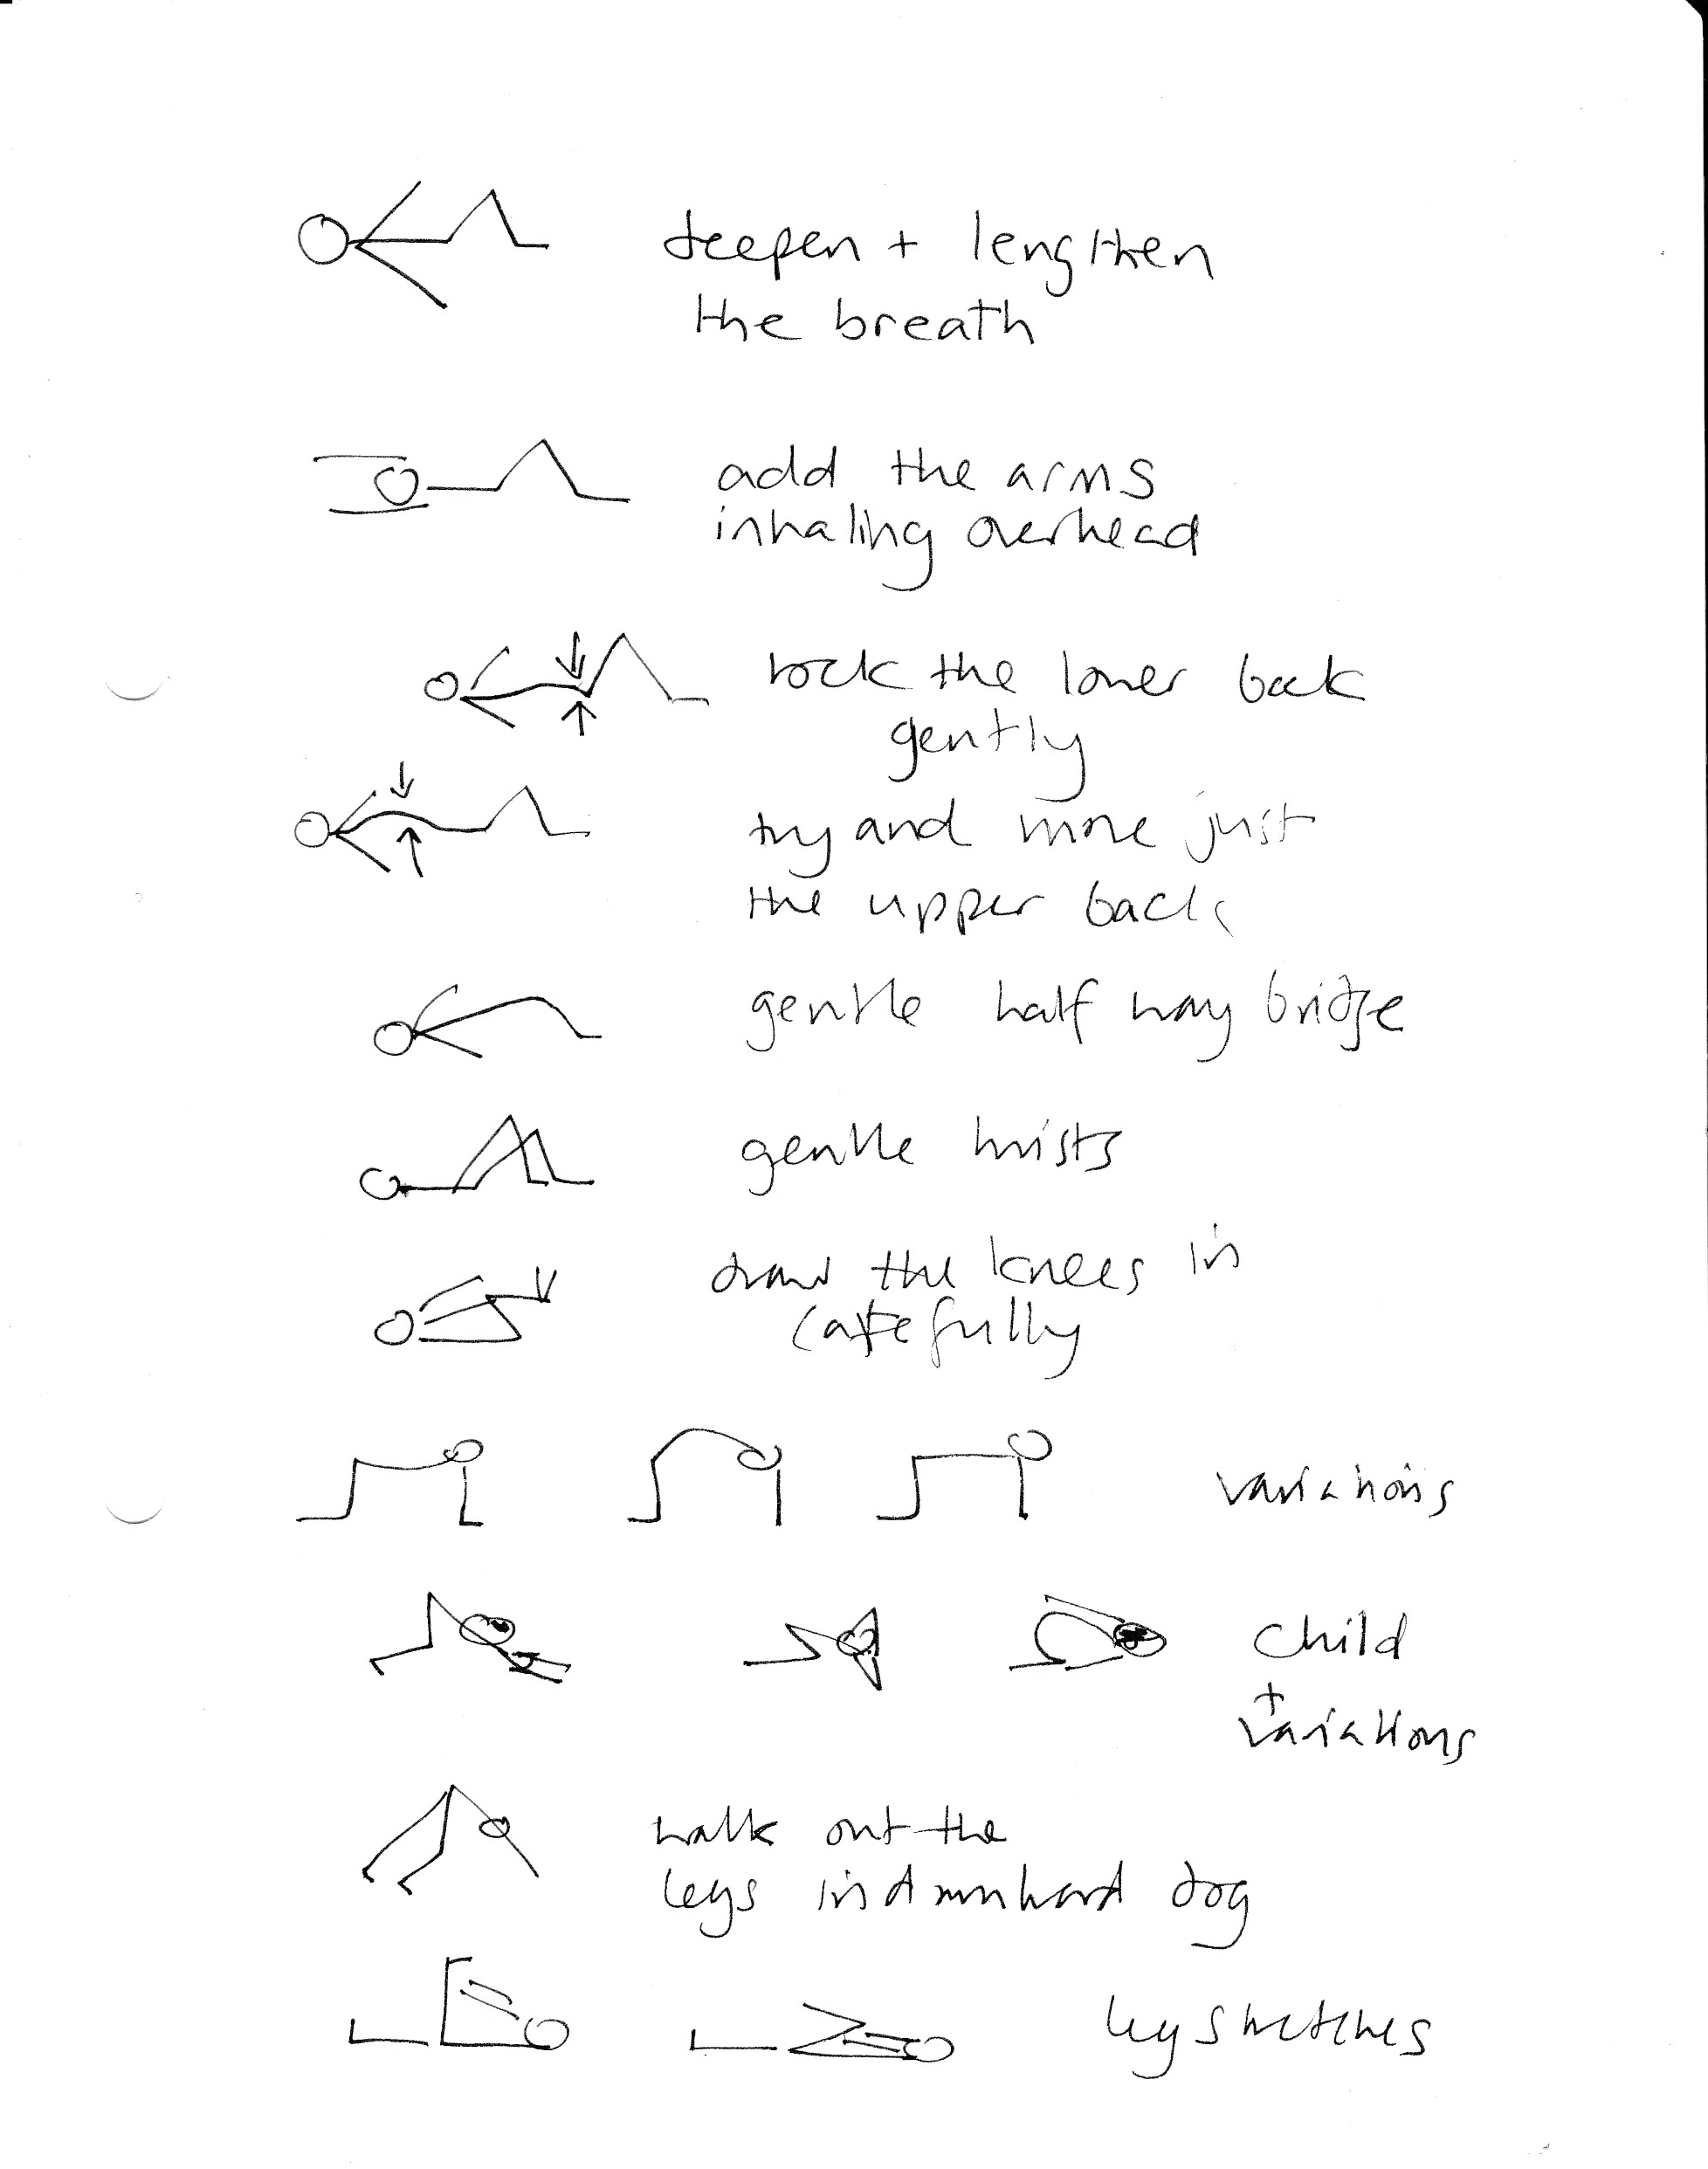 deepen + lengthen
the breath
add the arms
inhaling overhead
rock the lower back
gently
try and move just
the upper back
gentle half way bridge
gentle twists
draw the knees in
carefully
variations
child
+
variations
walk out the
legs in downward dog
leg stretches